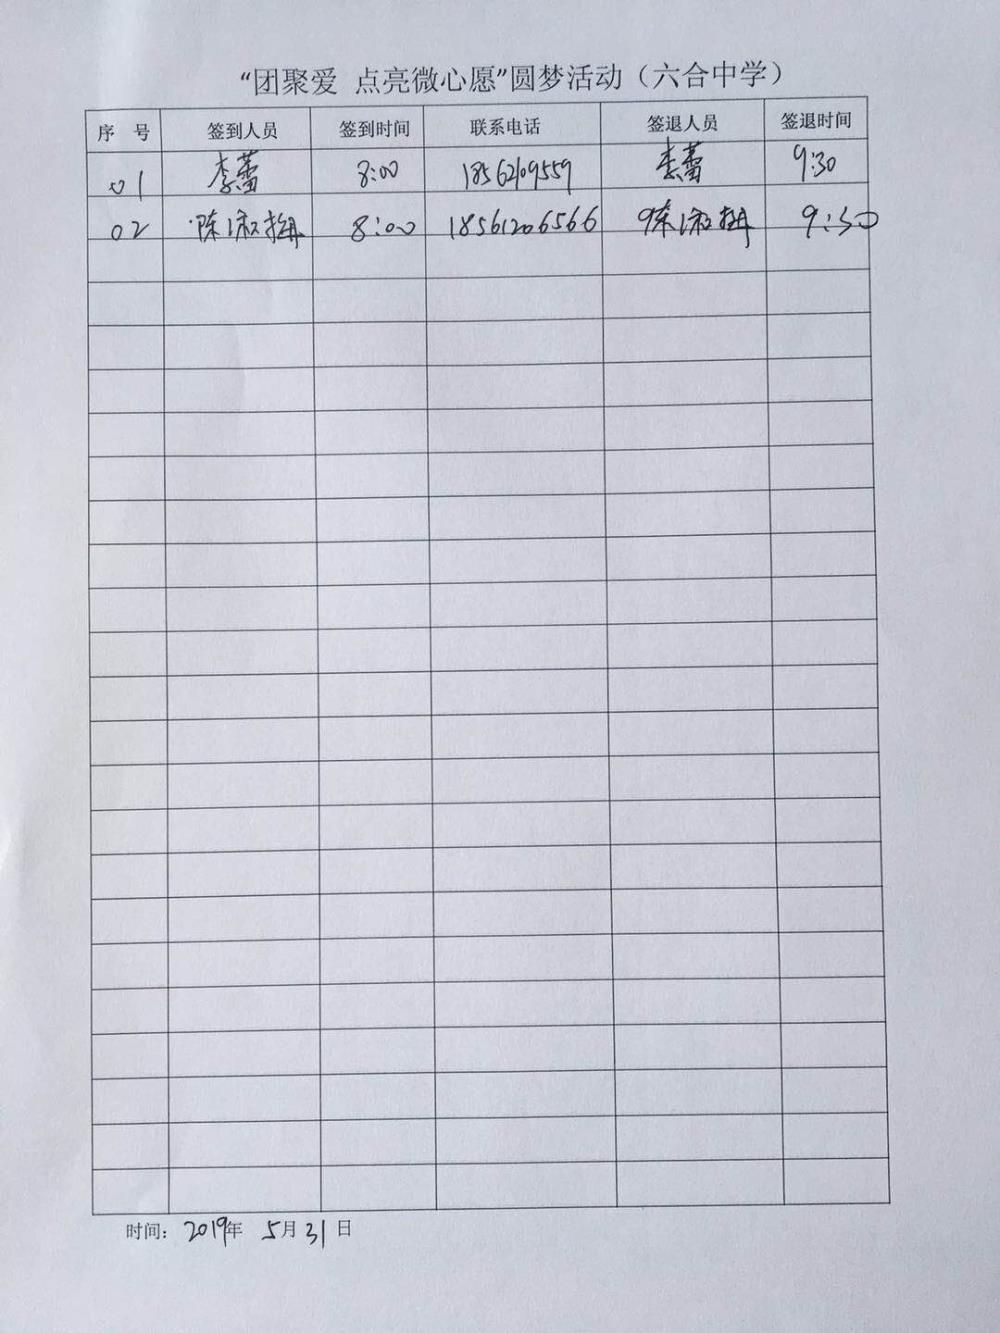 “团聚爱 点亮微心愿”圆梦活动（六合中学）
序 号 签到人员 签到时间 联系电话 签退人员 签退时间
01 李蕾 8:00 18562109559 李蕾 9:30
02 陈淑 8:00 18561206566 陈淑 9:30
时间：2019年 5月31日